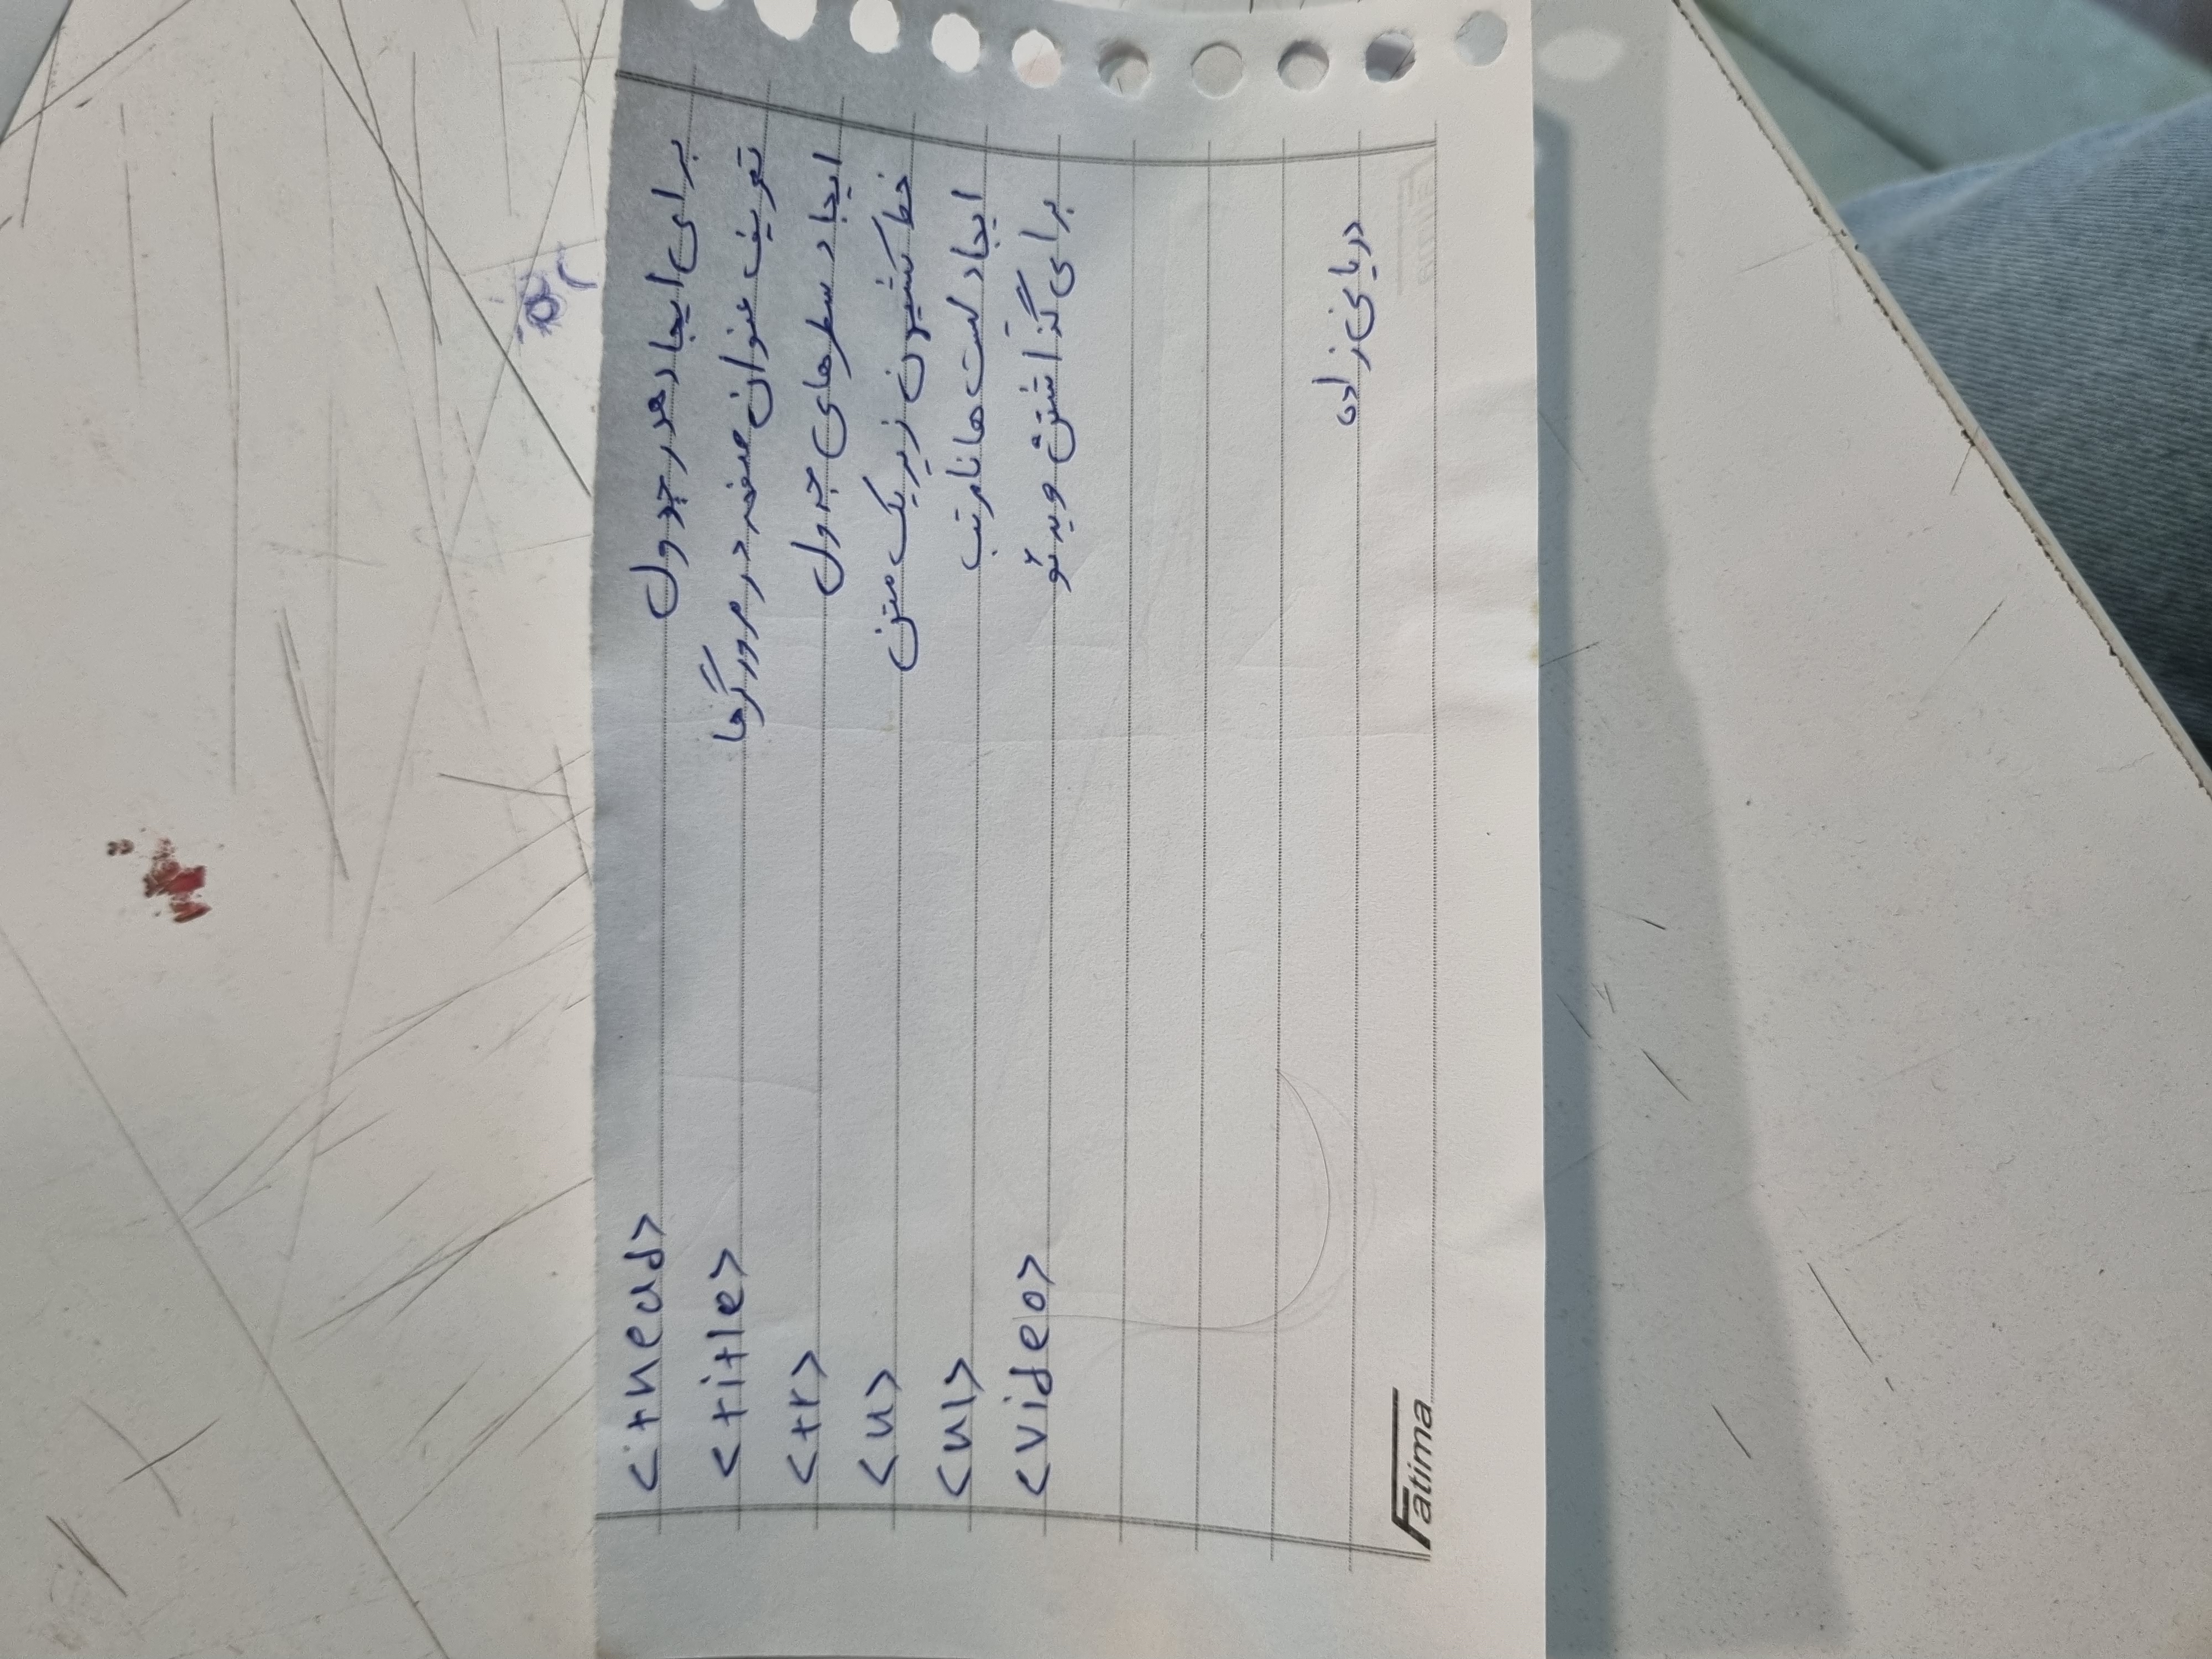 <thead> برای ایجاد هدر جدول
<title> تعریف عنوان صفحه در مرورگرها
<tr> ایجاد سطرهای جدول
<u> خط کشیدن زیر یک متن
<ul> ایجاد لیست ها نامرتب
<video> برای گذاشتن ویدئو
دریایی زاده
Fatima